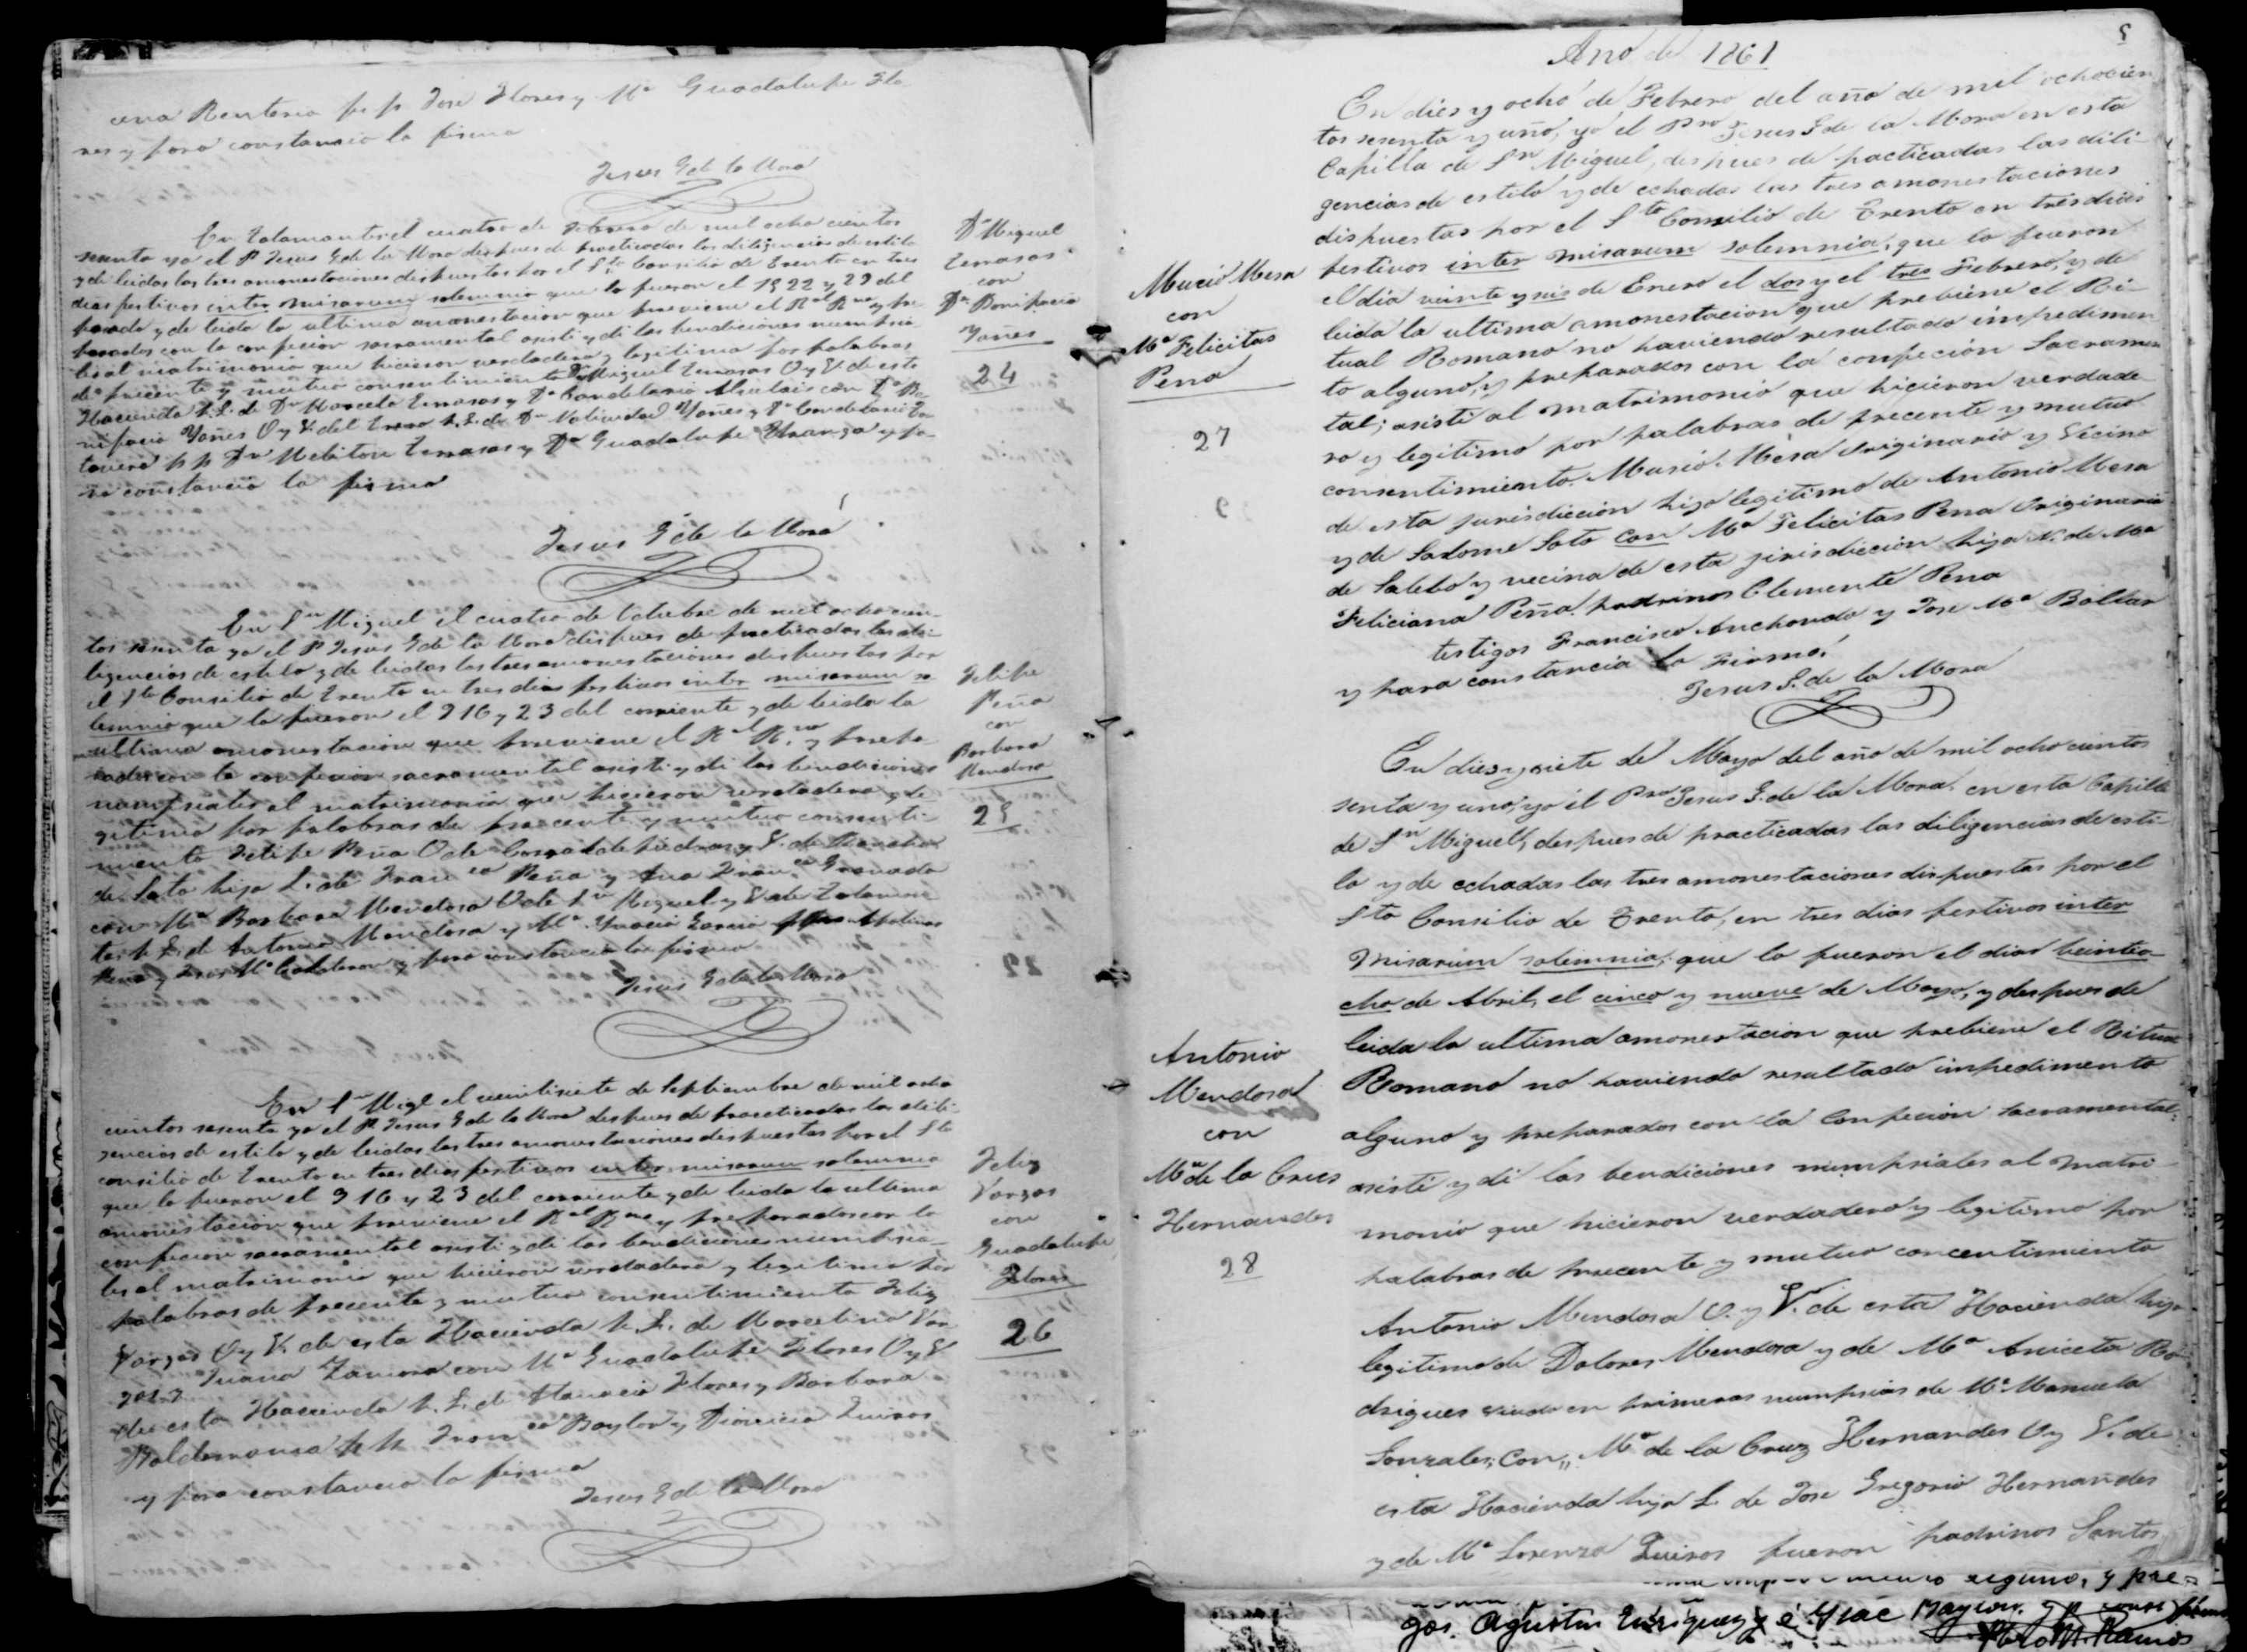 cena Renteria pp José Flores y Ma Guadalupe Flo-
res y para constancia lo firmo
Jesus G de la Mora
En Talamantes el cuatro de Febrero de mil ocho cientos
sesenta yo el P. Jesus G de la Mora despues de practicadas las diligencias de estilo
y de leidas las tres amonestaciones dispuestas por el Sto Consilio de Trento en tres
dias festivos inter misarum solemnia que lo fueron el 15 22 y 29 del
pasado y de leida la ultima amonestacion que previene el Ral Rno y pre-
parados con la confecion sacramental asisti y di las bendiciones numpsia-
les al matrimonio que hicieron verdadero y legitimo por palabras
de precente y mutuo consentimiento Dn Miguel Terrasas O y V de esta
Hacienda h. L. de Dn Marcelo Terrasas y Da Candelaria con Da Bo-
nifacia Yañes O y V. del h. L. de Dn Natividad Yañes y Da Candelaria
pp Dn Meliton Terrasas y Da Guadalupe Uranga y pa-
ra constancia lo firmo
Jesus G de la Mora
Dn Miguel
Terrasas
con
Da Bonifacia
Yañes
24
En Sn Miguel el cuatro de Octubre de mil ocho cien-
tos sesenta yo el P Jesus G de la Mora despues de practicadas las di-
ligencias de estilo y de leidas las tres amonestaciones dispuestas por
el Sto Consilio de Trento en tres dias festivos inter misarum so-
lemnia que lo fueron el 9 16 y 23 del corriente y de leida la
ultima amonestacion que previene el Ral R.no y prepa-
rados con la confecion sacramental asisti y di las bendiciones
numpsiales al matrimonio que hicieron verdadero y le-
gitimo por palabras de precente y mutuo consenti-
miento Felipe Peña O de Corral de piedras y V. de Rancho
de Soto hijo L. de Franco Peña y Ana Franca Granado
con Ma Barbara Mendosa O de Sn Miguel y V de Talaman-
tes h L. de Antonio Mendosa y Ma Ygnacia Garcia Apolinar
Peña y Jesus Ma Calderon y para constancia lo firmo
Jesus G de la Mora
Felipe
Peña
con
Barbara
Mendosa
25
En Sn Migl el veintisiete de Septiembre de mil ocho
cientos sesenta yo el P. Jesus G de la Mora despues de practicadas las dili-
gencias de estilo y de leidas las tres amonestaciones dispuestas por el Sto
consilio de Trento en tres dias festivos inter misarum solemnia
que lo fueron el 9 16 y 23 del corriente y de leida la ultima
amonestacion que previene el Ral Rno y preparados con la
confecion sacramental asisti y di las bendiciones numpsia-
les al matrimonio que hicieron verdadero y legitimo por
palabras de precente y mutuo consentimiento Feliz
Vargas O y V. de esta Hacienda h. L. de Marcelino Var-
gas y Juana Zamora con Ma Guadalupe Flores O y V
de esta Hacienda h. L. de Atanacio Flores y Barbara
Baldemansa pp Franco Baylon y Dionicia Quiros
y para constancia lo firmo
Jesus G de la Mora
Feliz
Vargas
con
Guadalupe
Flores
26
Año de 1861
5
En dies y ocho de Febrero del año de mil ochocien-
tos sesenta y uno, yo el Pro Jesus G. de la Mora en esta
Capilla de Sn Miguel, despues de pacticadas las dili-
gencias de estilo y de echadas las tres amonestaciones
dispuestas por el Sto Consilio de Trento en tres dias
festivos inter misarum solemnia, que lo fueron
el dia veinte y seis de Enero el dos y el tres Febrero, y de
leida la ultima amonestacion que prebiene el Ri-
tual Romano no haviendo resultado impedimen-
to alguno, y preparados con la confecion Sacramen-
tal; asisti al matrimonio que hicieron verdade-
ro y legitimo por palabras de precente y mutuo
consentimiento. Musio Mesa Originario y Vecino
de esta jurisdiccion hijo legitimo de Antonio Mesa
y de Salome Soto con Ma Felicitas Pena Originaria
de Satebó y vecina de esta jirisdiccion hija N. de Ma
Feliciana Peña. padrinos Clemente Pena
testigos Francisco Anchondo y Jose Ma Baldar
y para constancia lo Firmo.
Jesus G. de la Mora
Mucio Mesa
con
Ma Felicitas
Pena
27
En dies y siete de Mayo del año de mil ocho cientos
senta y uno, yo el Pro Jesus G. de la Mora. en esta Capilla
de Sn Miguel, despues de practicadas las diligencias de esti-
lo y de echadas las tres amonestaciones dispuestas por el
Sto Consilio de Trento, en tres dias festivos inter
misarum solemnia; que lo fueron el dias beinteo-
cho de Abril, el cinco y nueve de Mayo, y despues de
leida la ultima amonestacion que prebiene el Ritual
Romano no haviendo resultado impedimento
alguno y preparados con la Confecion sacramental:
asisti y di las bendiciones numpsiales al matri-
monio que hicieron verdadero y legitimo por
palabras de precente y mutuo concentimiento
Antonio Mendosa O. y V. de esta Hacienda hijo
legitimo de Dolores Mendosa y de Ma Aniceta Ro-
drigues viudo en primeras numpsias de Ma Manuela
Gonzales; Con,, Ma de la Cruz Hernandes O y V. de
esta Hacienda hija L. de Jose Gregorio Hernandes
y de Ma Lorenza Quiros fueron padrinos Santos
Antonio
Mendosa
con
Ma de la Crus
Hernandes
28
alguno, y pre-
gos. Agustin Enriquez y Ysac
Ramos